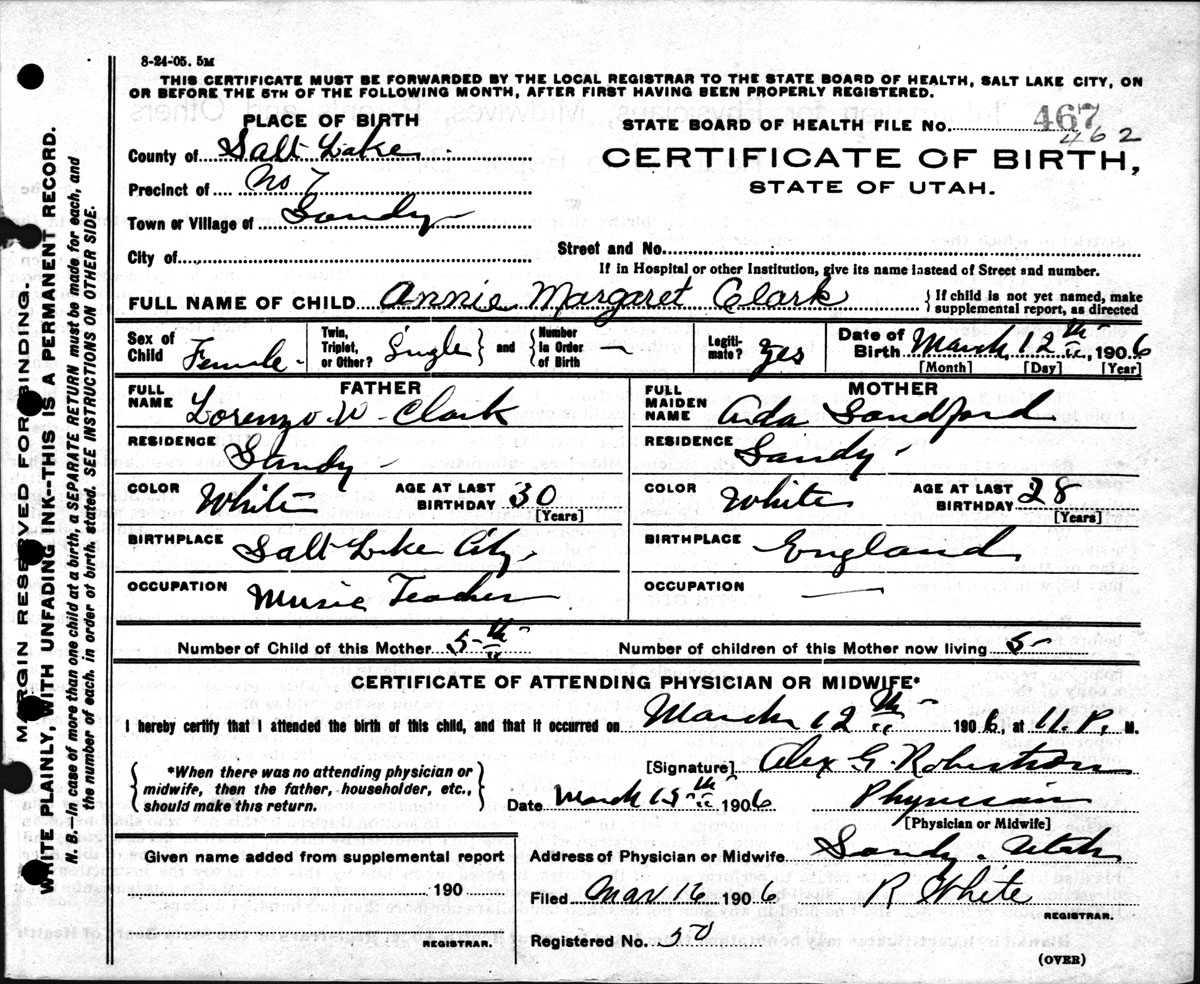 8-24-05. 5M
THIS CERTIFICATE MUST BE FORWARDED BY THE LOCAL REGISTRAR TO THE STATE BOARD OF HEALTH, SALT LAKE CITY, ON
OR BEFORE THE 5TH OF THE FOLLOWING MONTH, AFTER FIRST HAVING BEEN PROPERLY REGISTERED.
PLACE OF BIRTH
County of Salt Lake
Precinct of No 7
Town or Village of Sandy
City of
STATE BOARD OF HEALTH FILE No. 467
462
CERTIFICATE OF BIRTH,
STATE OF UTAH.
Street and No.
If in Hospital or other Institution, give its name instead of Street and number.
FULL NAME OF CHILD Annie Margaret Clark { If child is not yet named, make supplemental report, as directed
Sex of Child Female - Twin, Triplet, or Other? Single } and { Number in Order of Birth — Legitimate? Yes Date of Birth March 12th, 1906
[Month] [Day] [Year]
FATHER
FULL NAME Lorenzo W. Clark
RESIDENCE Sandy -
COLOR White AGE AT LAST BIRTHDAY 30
[Years]
BIRTHPLACE Salt Lake City
OCCUPATION Music Teacher
MOTHER
FULL MAIDEN NAME Ada Sandford
RESIDENCE Sandy -
COLOR White AGE AT LAST BIRTHDAY 28
[Years]
BIRTHPLACE England
OCCUPATION —
Number of Child of this Mother 5th Number of children of this Mother now living 5
CERTIFICATE OF ATTENDING PHYSICIAN OR MIDWIFE*
I hereby certify that I attended the birth of this child, and that it occurred on March 12th 1906, at 11. P. M.
{ *When there was no attending physician or midwife, then the father, householder, etc., should make this return. }
[Signature] Alex G. Robertson
Date March 15th 1906 Physician
[Physician or Midwife]
Given name added from supplemental report
190
REGISTRAR.
Address of Physician or Midwife Sandy. Utah
Filed Mar 16 1906 R White
REGISTRAR.
Registered No. 50
(OVER)
MARGIN RESERVED FOR BINDING.
WRITE PLAINLY, WITH UNFADING INK--THIS IS A PERMANENT RECORD.
N. B. In case of more than one child at a birth, a SEPARATE RETURN must be made for each, and
the number of each. in order of birth. stated. SEE INSTRUCTIONS ON OTHER SIDE.